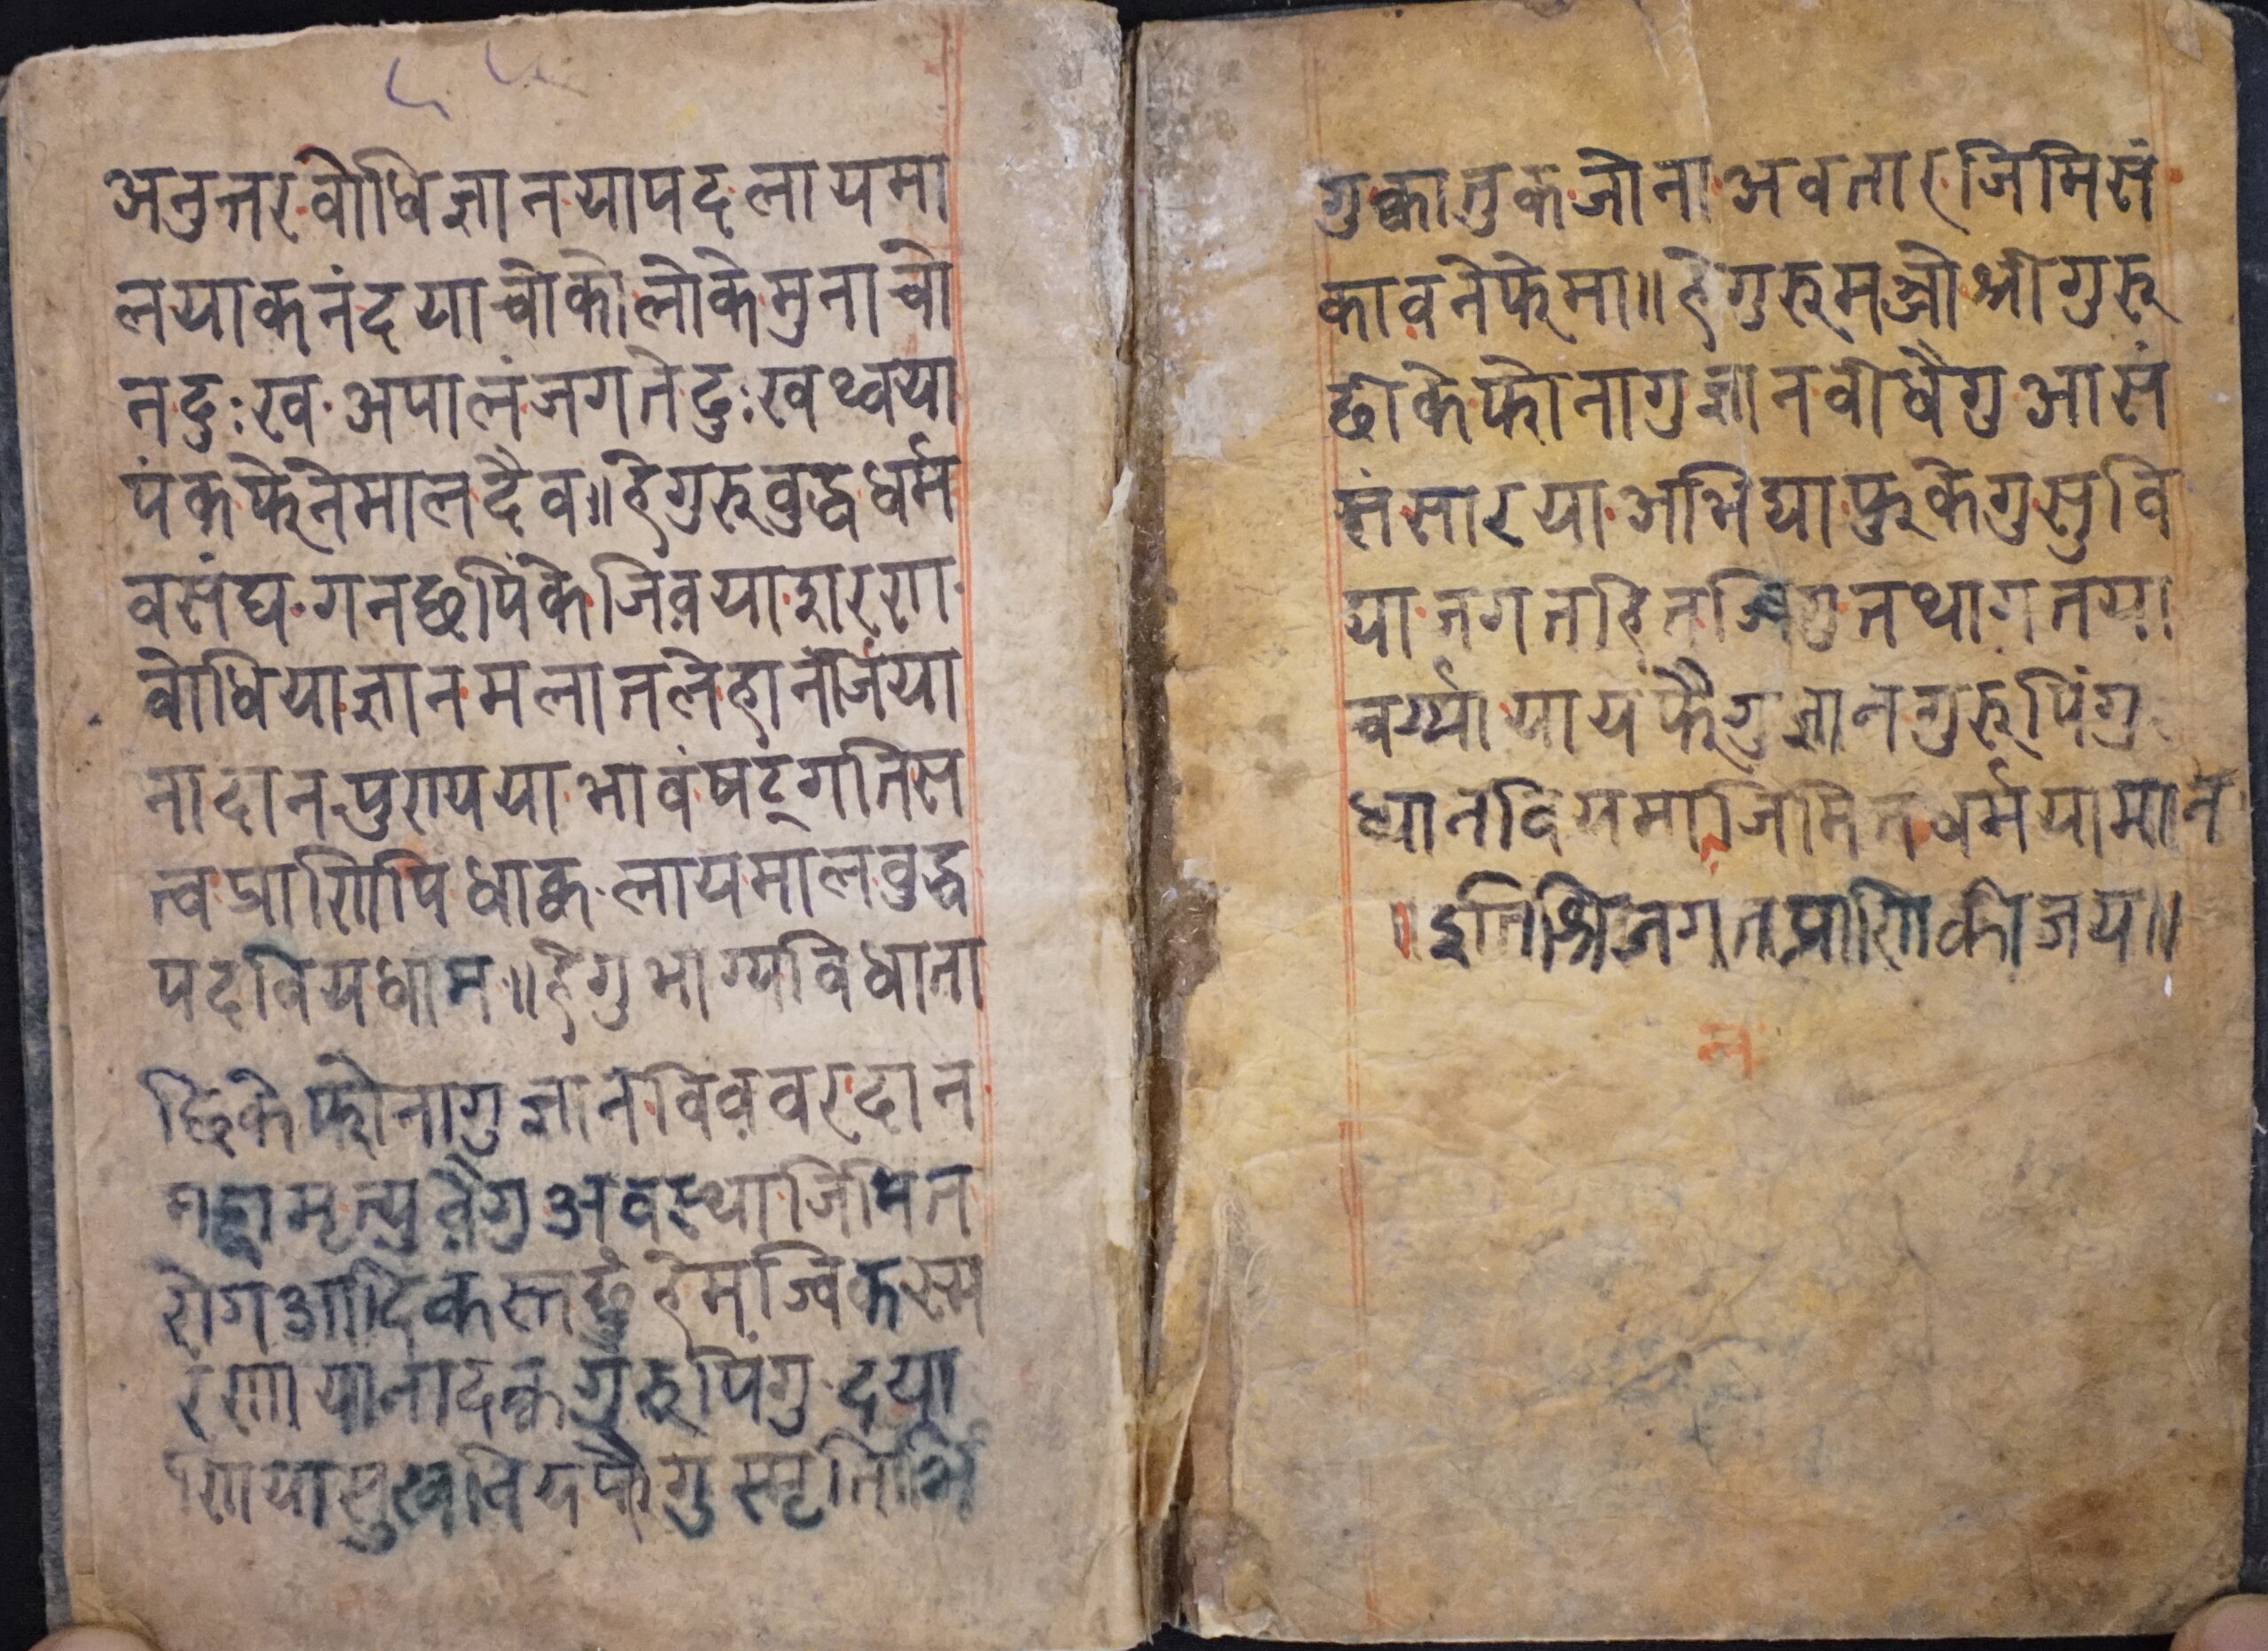 अनुत्तर वोधिज्ञानयापदलायमा
लयाकनंदयाचोको लोकेमुनाचो
नदुःख अपालंजगतेदुःखथ्वया
पंकफेनेमालदैव॥हेगुरुवुद्धधर्म
वसंघ गनछपिंकेजिव़याशरण
वोधियाज्ञानमलातलेहानंजिंया
नादानपुण्ययाभावंषट्गतिस
त्वप्राणिपिं धाक्व लायमालवुद्ध
पदवियधाम॥हेगुभाग्यविधाता
छिकेफोनागुज्ञानविव़वरदान
मृत्युवै़गुअवस्थाजिमित
रोगआदिकस्तछुंहेमज्विकस्म
रणयानादक्वगुरुपिंगु दया
णियासुखवियफैगुस्मृति
गुक्वातुकजोनाअवतारजिमिसं
काव़नेफेमा॥हेगुरुमञ्जीश्रीगुरु
छीकेफोनागुज्ञानवोधैगुआसं
संसारयाअभिद्याफुकेगुसुवि
याजगतहित गुतथागतया
चर्य्यायायफैगुज्ञानगुरुपिंगु
ध्यानवियमाजिमितधर्मयामान
॥इतिश्रिजगतप्राणिकीजय॥